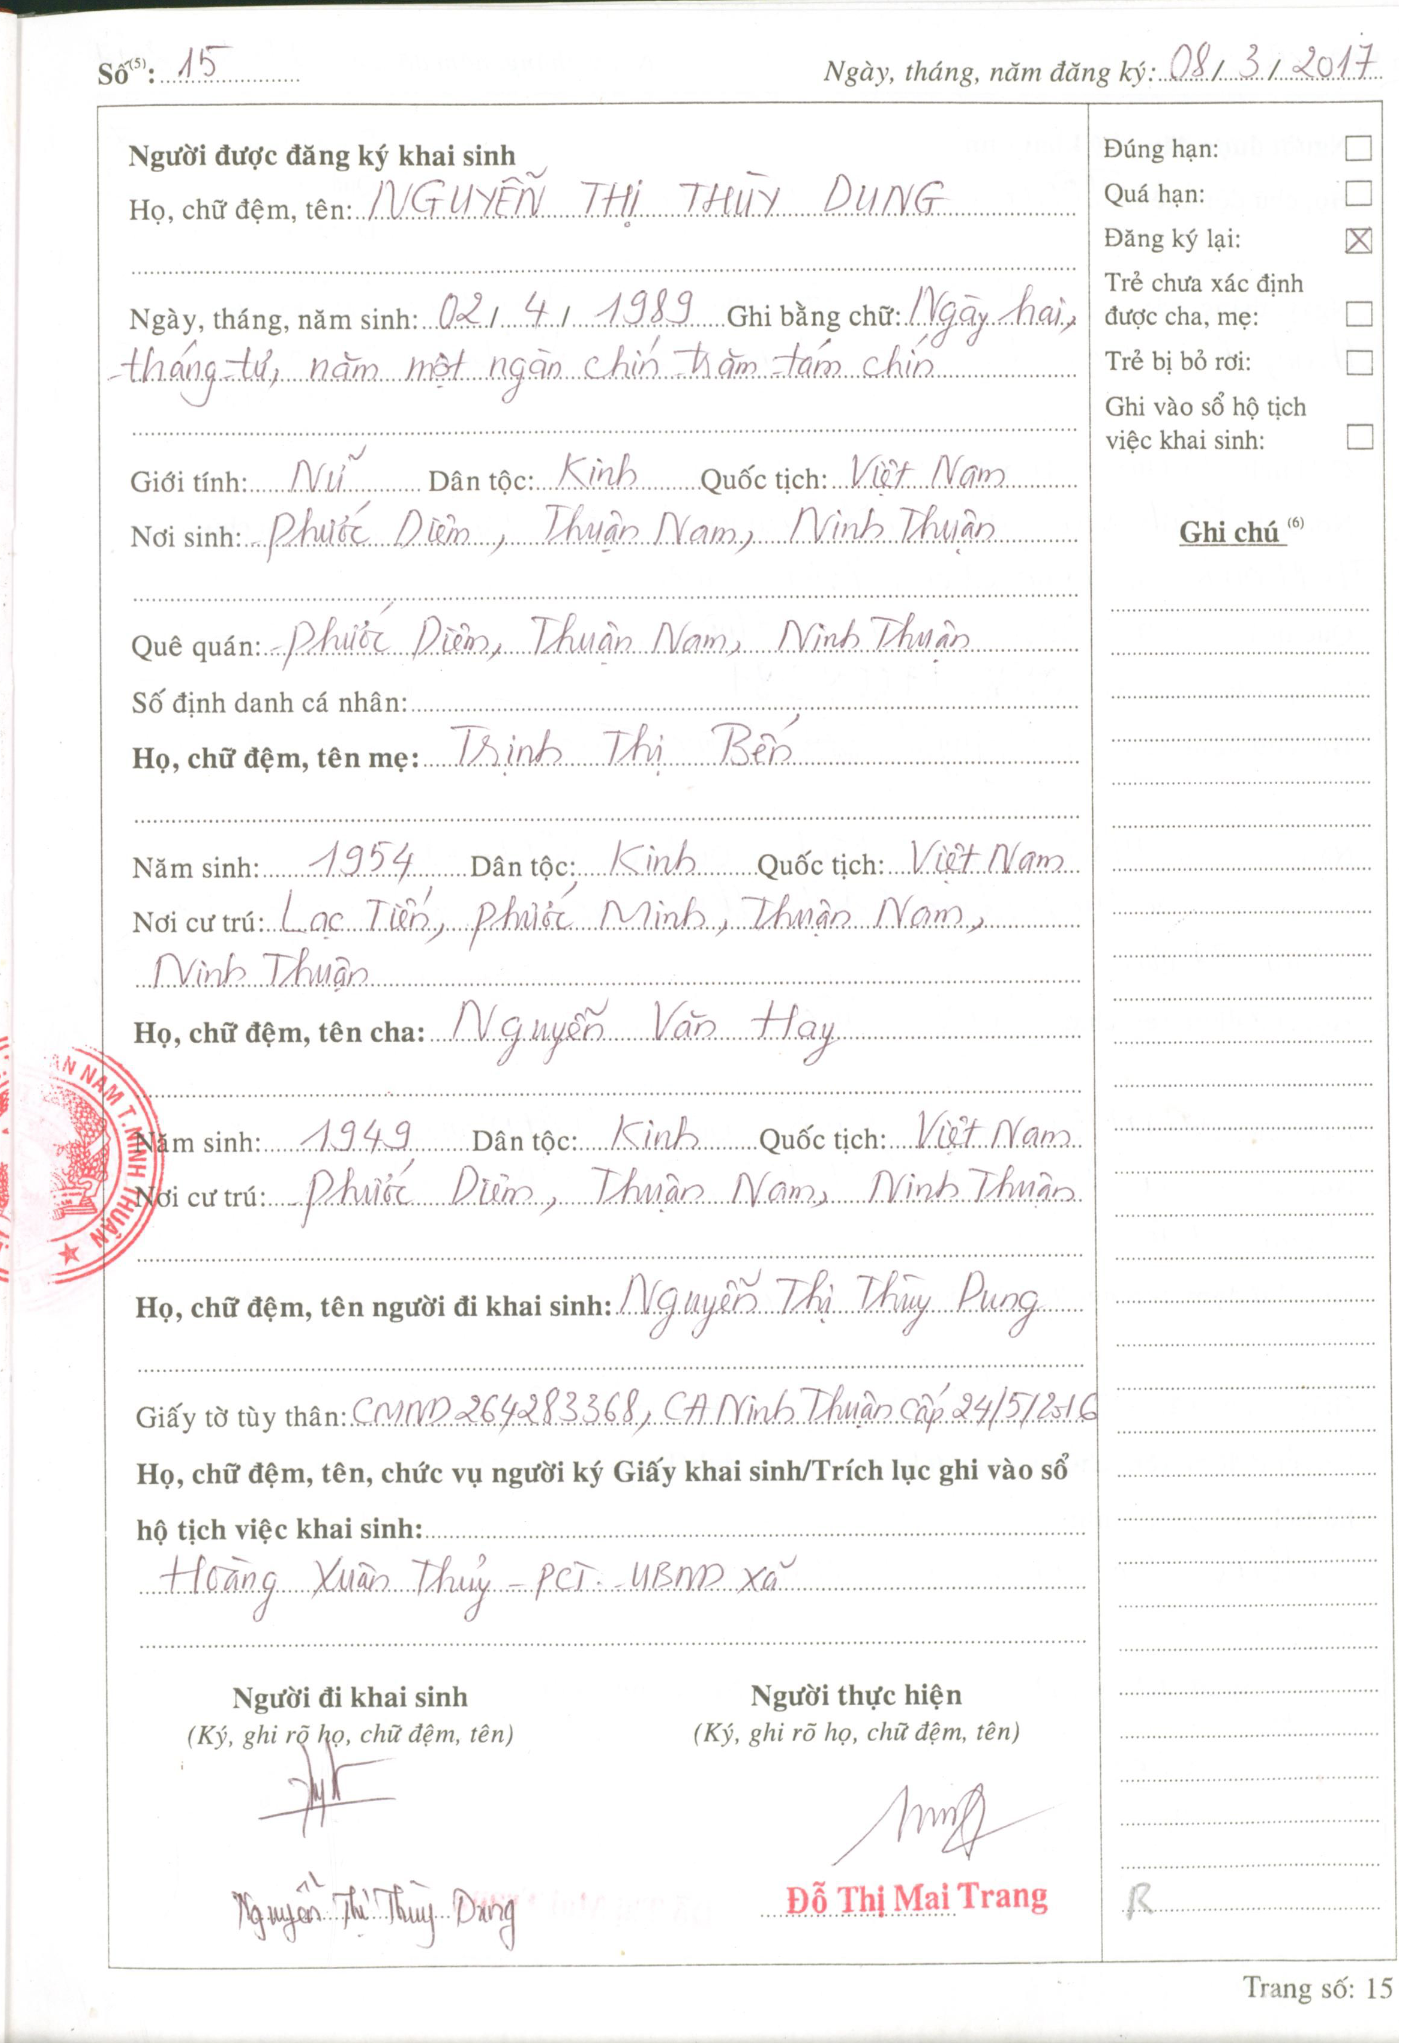 Số(5): 15
Ngày, tháng, năm đăng ký: 08/3/2017
Người được đăng ký khai sinh
Họ, chữ đệm, tên: NGUYỄN THỊ THÙY DUNG
Ngày, tháng, năm sinh: 02/4/1989 Ghi bằng chữ: Ngày hai,
tháng tư, năm một ngàn chín trăm tám chín
Giới tính: Nữ Dân tộc: Kinh Quốc tịch: Việt Nam
Nơi sinh: Phước Diêm, Thuận Nam, Ninh Thuận
Quê quán: Phước Diêm, Thuận Nam, Ninh Thuận
Số định danh cá nhân:
Họ, chữ đệm, tên mẹ: Trịnh Thị Bến
Năm sinh: 1954 Dân tộc: Kinh Quốc tịch: Việt Nam
Nơi cư trú: Lạc Tiến, Phước Minh, Thuận Nam,
Ninh Thuận
Họ, chữ đệm, tên cha: Nguyễn Văn Hay
Năm sinh: 1949 Dân tộc: Kinh Quốc tịch: Việt Nam
Nơi cư trú: Phước Diêm, Thuận Nam, Ninh Thuận
Họ, chữ đệm, tên người đi khai sinh: Nguyễn Thị Thùy Dung
Giấy tờ tùy thân: CMND 264283368, CA Ninh Thuận cấp 24/5/2016
Họ, chữ đệm, tên, chức vụ người ký Giấy khai sinh/Trích lục ghi vào sổ
hộ tịch việc khai sinh:
Hoàng Xuân Thủy - PCT. UBND xã
Người đi khai sinh
(Ký, ghi rõ họ, chữ đệm, tên)
Nguyễn Thị Thùy Dung
Người thực hiện
(Ký, ghi rõ họ, chữ đệm, tên)
Đỗ Thị Mai Trang
Đúng hạn:
Quá hạn:
Đăng ký lại: ☒
Trẻ chưa xác định
được cha, mẹ:
Trẻ bị bỏ rơi:
Ghi vào sổ hộ tịch
việc khai sinh:
Ghi chú (6)
R
NAM T.NINH THUẬN
Trang số: 15